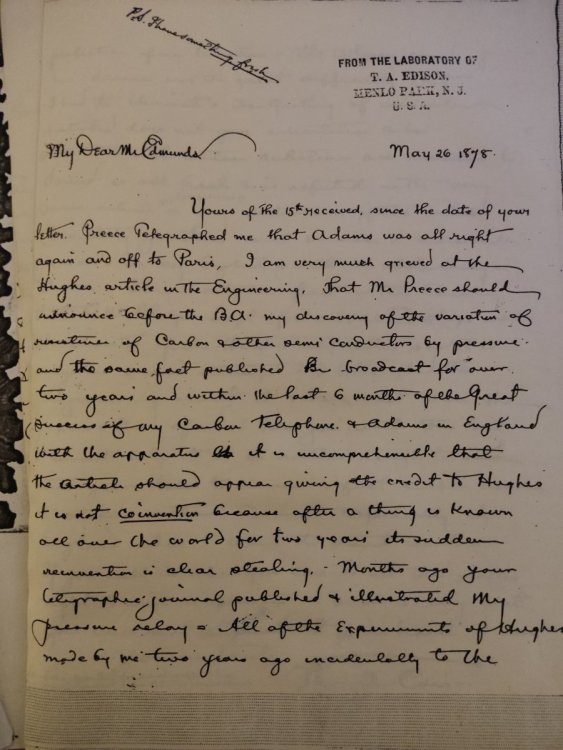 P.S. I have something fresh
FROM THE LABORATORY OF
T. A. EDISON,
MENLO PARK, N. J.
U. S. A.
My Dear Mr Edmunds
May 26 1878.
Yours of the 15th received, since the date of your
letter. Preece Telegraphed me that Adams was all right
again and off to Paris, I am very much grieved at the
Hughes article in the Engineering, That Mr Preece should
announce before the B.A. my discovery of the variation of
resistance of Carbon & other semi conductors by pressure.
and the same fact published broadcast for over
two years and within the last 6 months of the Great
success of my Carbon Telephone. & Adams in England
with the apparatus it is uncomprehensible that
the article should appear giving the credit to Hughes
it is not coinvention because after a thing is known
all over the world for two years its sudden
reinvention is clear stealing. - Months ago your
telegraphic journal published & illustrated My
pressure relay = All of the Experiments of Hughes
made by me two years ago incidentally to the